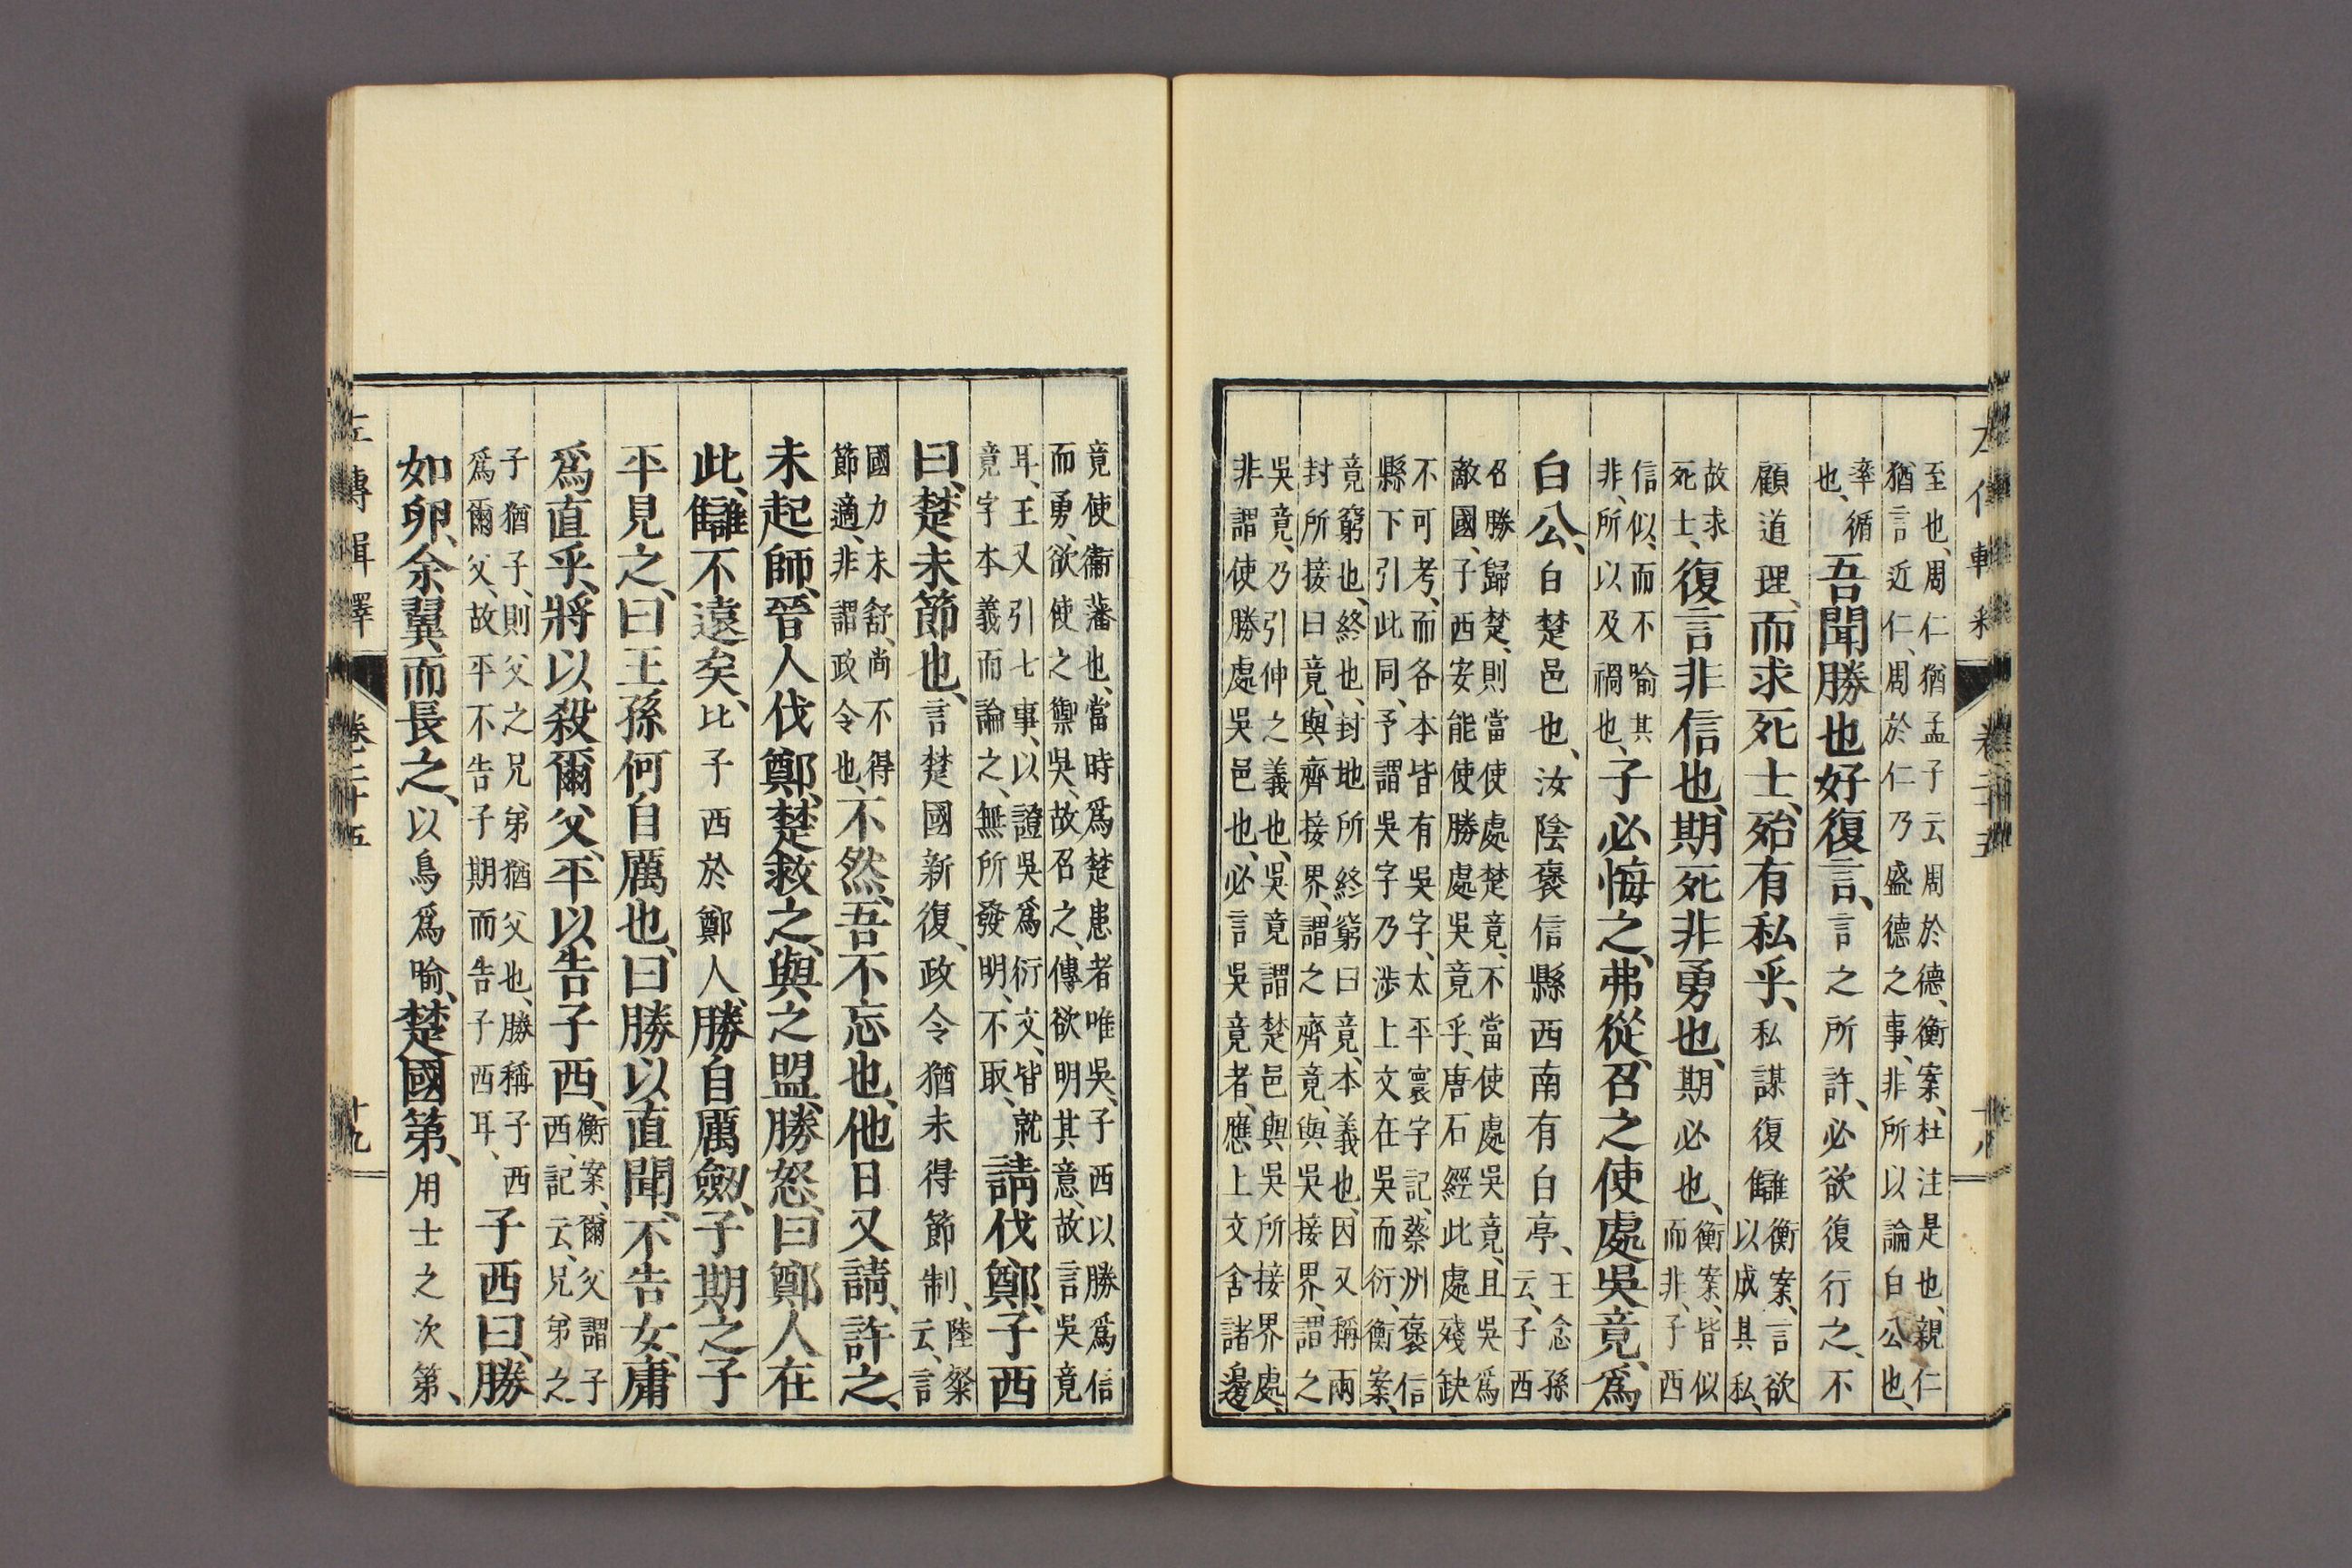 左傳輯釋 卷二十五 十八
至也、周仁猶孟子云周於德、衡案、杜注是也、親仁
猶言近仁、周於仁乃盛德之事、非所以論白公也、
率循也、吾聞勝也好復言、言之所許、必欲復行之、不
顧道理、而求死士、殆有私乎、私謀復讎衡案、言欲以成其私、
故求死士、復言非信也、期死非勇也、期必也、衡案、皆似而非、子西
信似、而不喻其非、所以及禍也、子必悔之、弗從、召之使處吳竟、爲
白公、白楚邑也、汝陰褒信縣西南有白亭、王念孫云、子西
召勝歸楚、則當使處楚竟、不當使處吳竟、且吳爲
敵國、子西安能使勝處吳竟乎、唐石經此處殘缺
不可考、而各本皆有吳字、太平寰宇記、蔡洲褒信
縣下引此同、予謂吳字乃涉上文在吳而衍、衡案、
竟窮也、終也、封地所終窮曰竟、本義也、因又稱兩
封所接曰竟、與齊接界、謂之齊竟、與吳接界、謂之
吳竟、乃引伸之義也、吳竟謂楚邑與吳所接界處、
非謂使勝處吳邑也、必言吳竟者、應上文舍諸邊
竟使衞藩也、當時爲楚患者唯吳、子西以勝爲信
而勇、欲使之禦吳、故召之、傳欲明其意、故言吳竟
耳、王又引七事、以證吳爲衍文、皆就
竟字本義而論之、無所發明、不取、請伐鄭、子西
曰、楚未節也、言楚國新復、政令猶未得節制、陸粲云、言
國力未舒、尚不得
節適、非謂政令也、不然、吾不忘也、他日又請、許之、
未起師、晉人伐鄭、楚救之、與之盟、勝怒、曰鄭人在
此、讎不遠矣、比子西於鄭人、勝自厲劔、子期之子
平見之、曰王孫何自厲也、曰勝以直聞、不告女、庸
爲直乎、將以殺爾父、平以告子西、衡案、爾父謂子西、記云、兄弟之
子猶子、則父之兄弟猶父也、勝稱子西
爲爾父、故平不告子期而告子西耳、子西曰、勝
如卵、余翼而長之、以鳥爲喻、楚國第、用士之次第、
左傳輯釋 卷二十五 十九